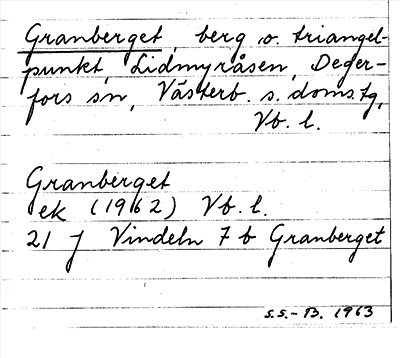 Granberget, berg o. triangel-
punkt, Lidmyråsen, Deger-
fors sn, Västerb. s. doms.tg,
Vb. l.
Granberget
ek (1962) Vb. l.
21 J Vindeln 7 b Granberget
S.S.-B. 1963